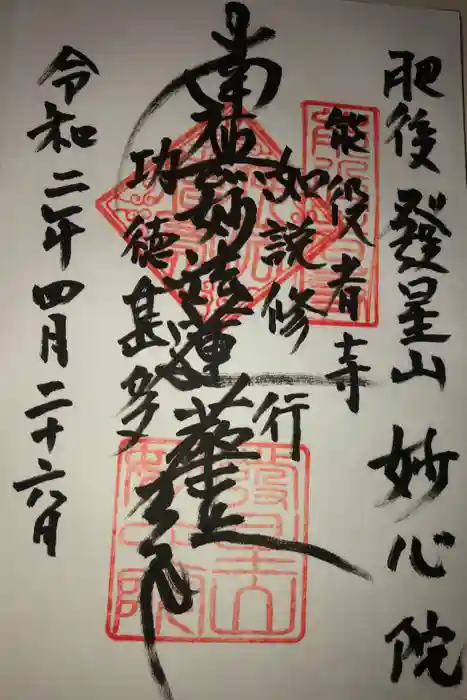 肥後 發星山 妙心院
能役者寺
如説修行
南無妙法蓮華経
功徳甚多
令和二年四月二十六日